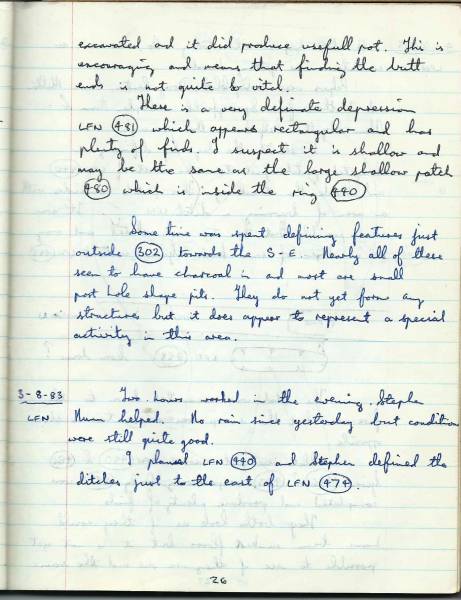 excavated and it did produce usefull pot. This is
encouraging and means that finding the butt
ends is not quite so vital.
There is a very definate depression
LFN 481 which appears rectangular and has
plenty of finds. I suspect it is shallow and
may be the same as the large shallow patch
480 which is inside the ring 440
Some time was spent defining features just
outside 302 towards the S-E. Nearly all of these
seem to have charcoal in and most are small
post hole shape pits. They do not yet form any
structures but it does appear to represent a special
activity in this area.
3-8-83 Two hours worked in the evening. Stephen
LFN helped. No rain since yesterday but condition
were still quite good.
I planned LFN 440 and Stephen defined the
ditches just to the east of LFN 474.
26